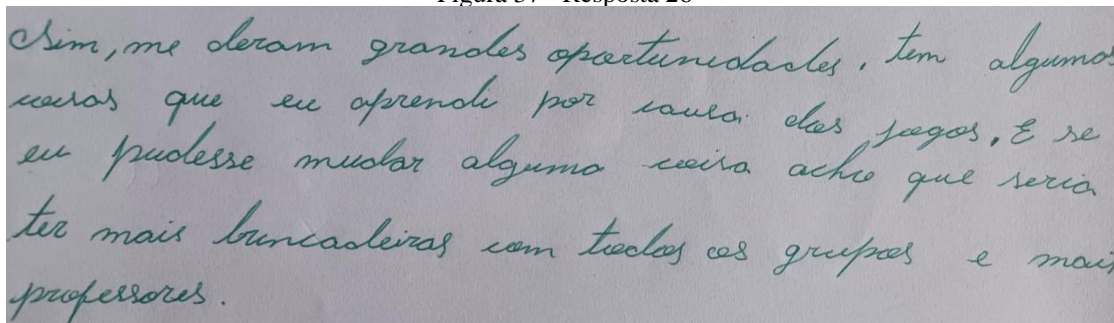 Figura 37 - Resposta 26
Sim, me deram grandes oportunidades, tem algumas
coisas que eu aprendi por causa dos jogos, E se
eu pudesse mudar alguma coisa acho que seria
ter mais brincadeiras com todos os grupos e mais
professores.